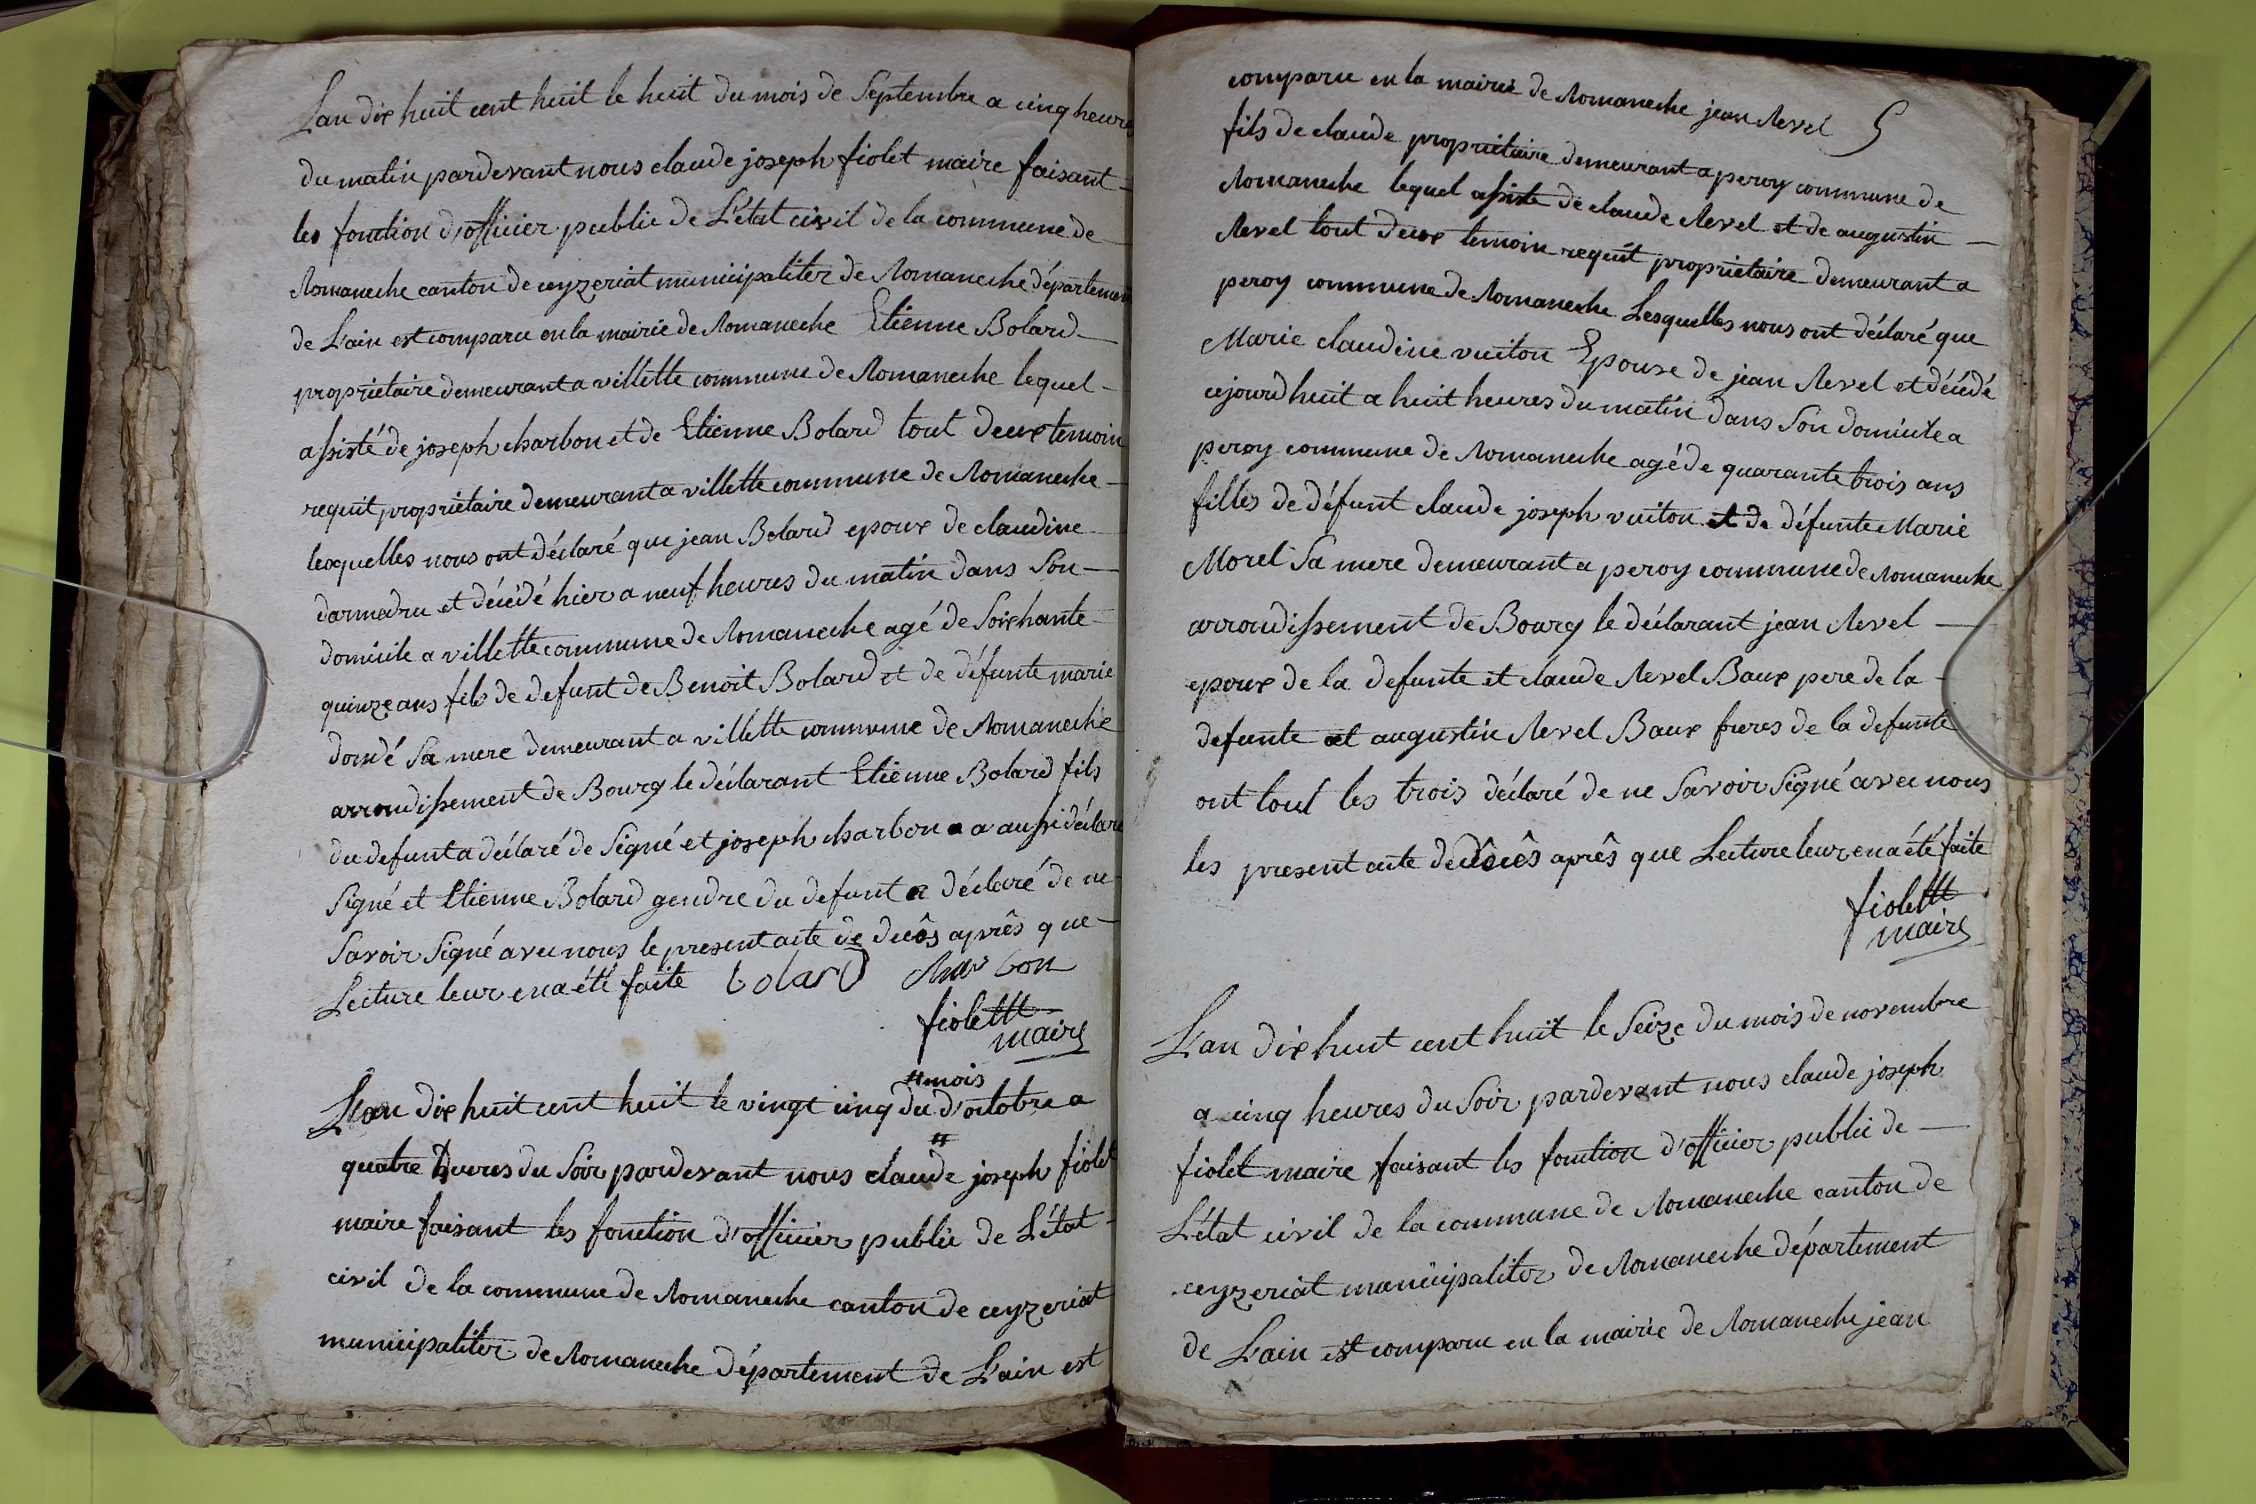 Lan dix huit cent huit le huit du mois de Septembre a cinq heures
du matin pardevant nous claude joseph fiolet maire faisant
les fonction d'officier public de L'état civil de la commune de
Romaneche canton de ceyzeriat municipaliter de Romaneche département
de L'ain est comparu en la mairie de Romaneche Etienne Bolard
propriétaire demeurant a villette commune de Romaneche lequel
assisté de joseph charbon et de Etienne Bolard tout deux temoin
requit propriétaire demeurant a villette commune de Romaneche
lesquelles nous ont déclaré que jean Bolard epoux de claudine
darmedru et décédé hier a neuf heures du matin dans Son
domicile a villette commune de Romaneche agé de Soixhante
quinze ans fils de defunt de Benoit Bolard et de défunte marie
dondé Sa mere demeurant a villette commune de Romaneche
arrondissement de Bourg le déclarant Etienne Bolard fils
du defunt a déclaré de Signé et joseph charbon a aussi déclaré
Signé et Etienne Bolard gendre du defunt a déclaré de ne
Savoir Signé avec nous le present acte de decês aprês que
Lecture leur en a été faite bolard Charbon
fiolett
maire
mois
L'an dix huit cent huit le vingt cinq du d'octobre a
quatre heures du Soir pardevant nous claude joseph fiolet
maire faisant les fonction d'officier public de L'état
civil de la commune de Romaneche canton de ceyzeriat
municipaliter de Romaneche département de L'ain est
comparu en la mairie de Romaneche jean Revel 5
fils de claude propriétaire demeurant a peroy commune de
Romaneche lequel assisté de claude Revel et de augustin
Revel tout deux temoin requit propriétaire demeurant a
peroy commune de Romaneche Lesquelles nous ont déclaré que
Marie claudine vuiton Epouse de jean Revel et décédé
cejourdhuit a huit heures du matin dans Son domicile a
peroy commune de Romaneche agé de quarante trois ans
filles de défunt claude joseph vuiton et de défunte Marie
Morel Sa mere demeurant a peroy commune de Romaneche
arrondissement de Bourg le déclarant jean Revel
epoux de la defunte et claude Revel Baux pere de la
defunte et augustin Revel Baux freres de la defunte
ont tout les trois déclaré de ne Savoir Signé avec nous
les present acte de decês aprês que Lecture leur en a été faite
fiolett
maire
L'an dix huit cent huit le Seize du mois de novembre
a cinq heures du Soir pardevant nous claude joseph
fiolet maire faisant les fonction d'officier public de
L'état civil de la commune de Romaneche canton de
ceyzeriat municipaliter de Romaneche département
de L'ain est comparu en la mairie de Romaneche jean